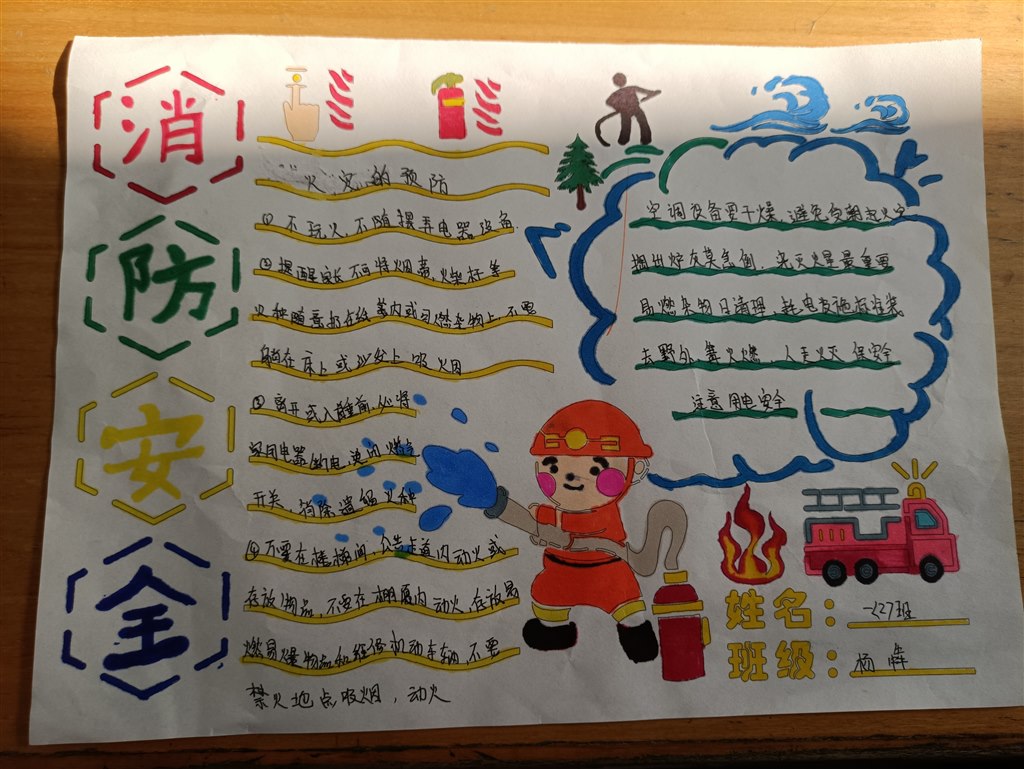 消防安全
火灾的预防
①不玩火、不随摆弄电器设备
②提醒家长不可将烟蒂、火柴杆等
火种随意扔在纸篓内或可燃杂物上,不要
躺在床上或沙发上吸烟
③离开或入睡前,必将
家用电器断电,关闭燃气
开关,消除遗留火种
④不要在楼梯间、公共走道内动火或
存放物品,不要在棚厦内动火、存放易
燃易爆物品和维修机动车辆,不要
禁火地点吸烟,动火
空调设备要干燥 避免受潮起火灾
掏出炉灰莫急倒,光灭火星最重要
易燃杂物日清理,耗电设施
去野外 篝火燃,人走火灭 保安全
注意用电安全
姓名:一27班
班级:杨